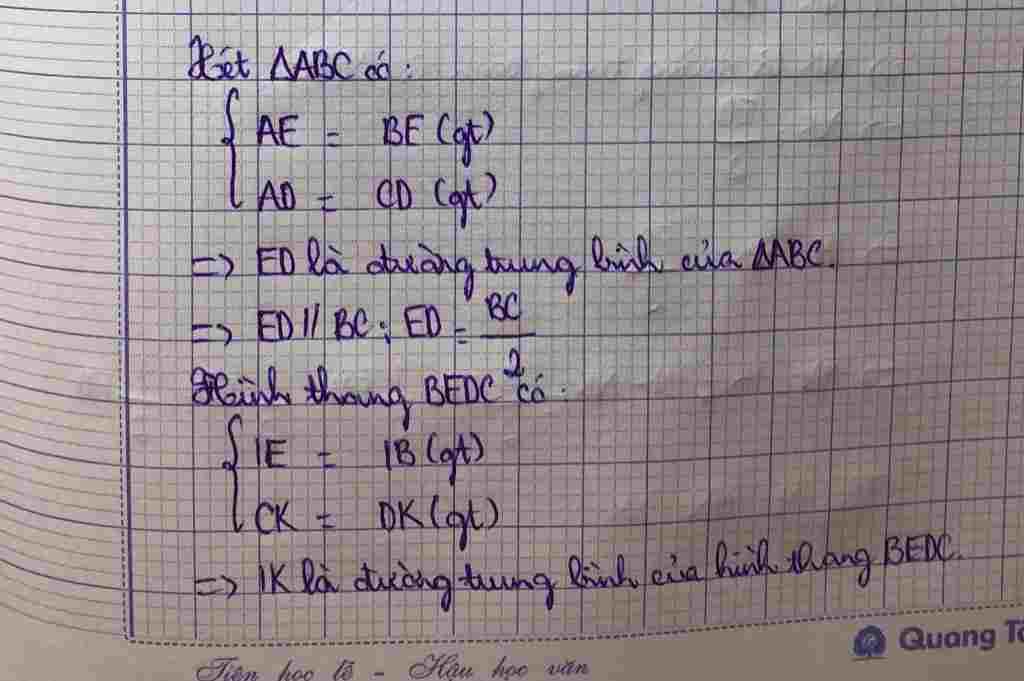 Xét ΔABC có:
AE = BE (gt)
AD = CD (gt)
=> ED là đường trung bình của ΔABC.
=> ED // BC ; ED = BC/2
Hình thang BEDC có:
IE = IB (gt)
CK = DK (gt)
=> IK là đường trung bình của hình thang BEDC.
Quang
Tiên học lễ - Hậu học văn